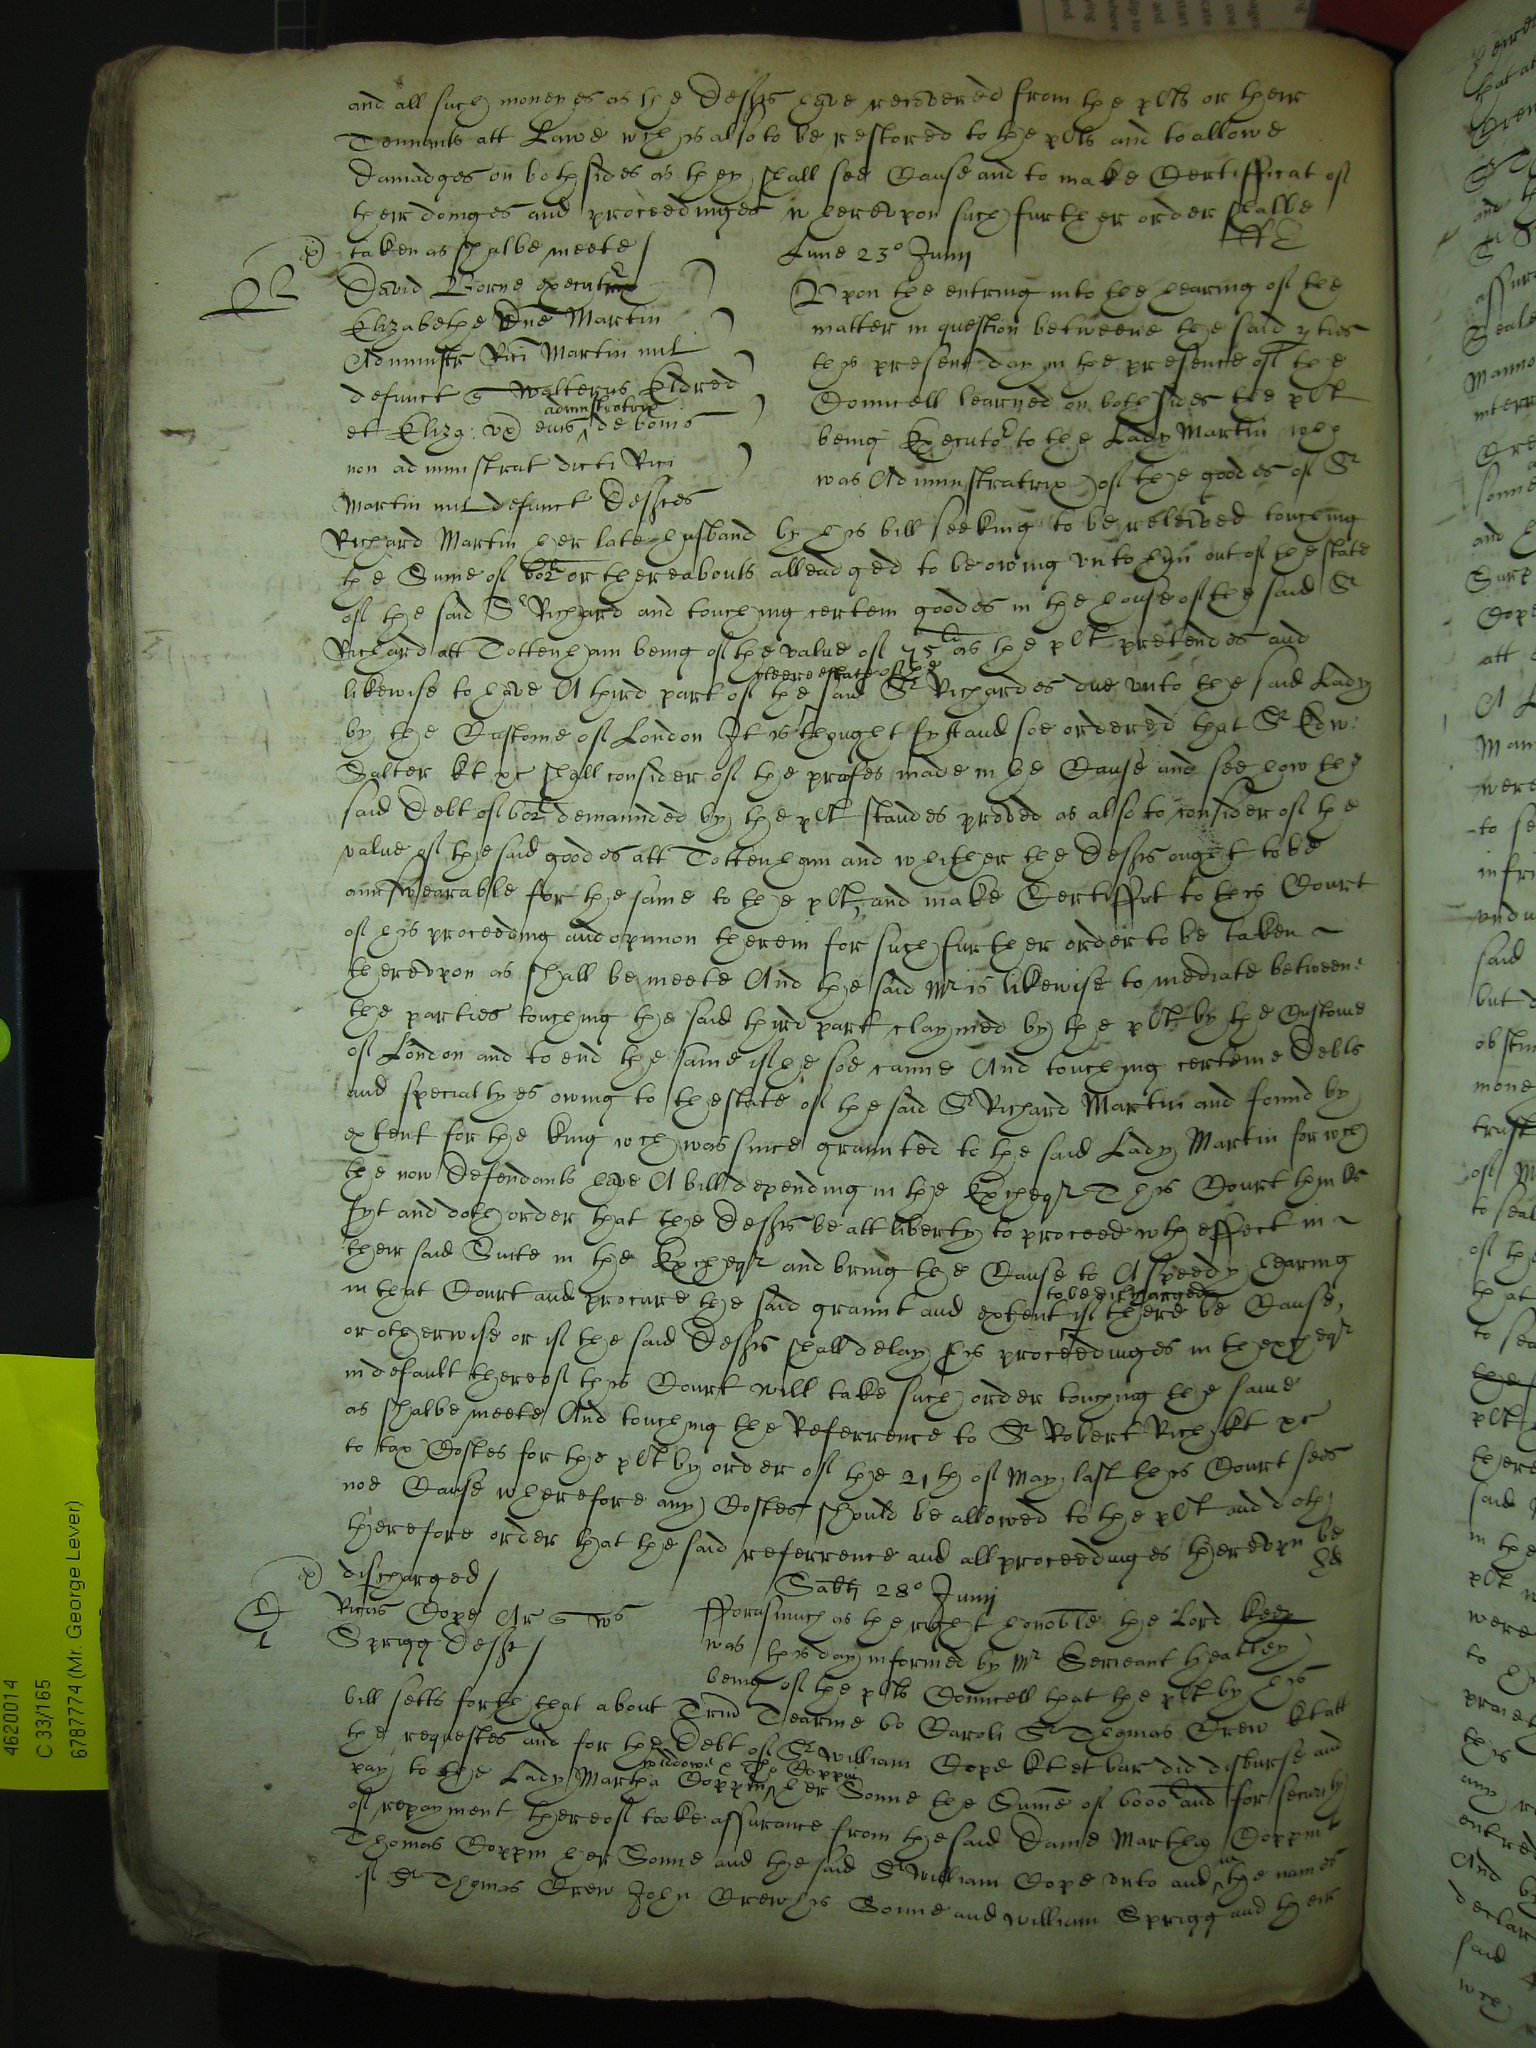 and all such moneyes as the Defts have recovered from the plts or their
Tennants att Lawe wch is also to be restored to the plts and to allowe
damadges on both sides as they shall see Cause and to make Certifficat of
their doinges and proceedinges wherevpon such further order shalbe
taken as shalbe meete /
Lune 23° Junij
David Borne executr
Elizabethe Dne Martin
Administr Rici Martin mil
defunct Walterus Eldred
et Eliza: vx eius administratrix de bonis
non administrat dicti Rici
Martin mil defunct Deftes
Vpon the entring into the hearing of the
matter in question betweene the said pties
this present day in the presence of the
Councell learned on both sides the plt
being Executor to the Lady Martin who
was Administratrix of the goodes of Sr
Richard Martin her late husband by his bill seeking to be releived touching
the Sume of 60li or thereabouts alleadged to be owing vnto him out of the state
of the said Sr Richard and touching certein goodes in the house of the said Sr
Richard att Tottenham being of the value of 75li as the plt pretendes and
likewise to have A third part of the cleere estate of the said Sr Richardes due vnto the said Lady
by the Custome of London It is thought fytt and soe ordered that Sr Edw:
Salter kt &c shall consider of the profes made in the Cause and see how the
said Debt of 60li demaunded by the plt standes proved as also to consider of the
value of the said goodes att Tottenham and whither the Defts ought to be
aunswearable for the same to the plt, and make Certifficat to this Court
of his proceeding and opinion therein for such further order to be taken
therevpon as shall be meete And the said Mr is likewise to mediate betweene
the parties touching the said third part claymed by the plt by the Custome
of London and to end the same if he soe canne And touching certeine Debts
and specialtyes owing to the state of the said Sr Richard Martin and found by
extent for the king wch was since graunted to the said Lady Martin for wch
the now Defendants have A bill depending in the Exchequer This Court thinks
fyt and doth order that the Defts be att liberty to proceed wth effect in
their said Suite in the Exchequer and bring the Cause to A speedy hearing
in that Court and procure the said graunt and extent to be discharged if there be Cause,
or otherwise or if the said Defts shall delay his proceedinges in thexchequer
in default thereof this Court will take such order touching the same
as shalbe meete And touching the Referrence to Sr Robert Rich kt &c
to tax Costes for the plt by order of the 21th of May last this Court sees
noe Cause wherefore any Costes should be allowed to the plt and doth
therefore order that the said referrence and all proceedinges therevpon be
discharged /
Sabti 28° Junij
Ricus Cope Ar Ws
Sprigg Deft /
Fforasmuch as the right honoble the Lord keep
was this day informed by Mr Serieant Heatley
being of the plts Councell that the plt by his
bill setts forth that about Trin Tearme 60 Caroli Sr Thomas Crew kt att
the requestes and for the Debt of Sr William Cope kt et bar did disburse and
pay to the Lady Martha Coppin widdowe & Tho Coppin her Sonne the Sume of 6000li and for security
of repayment thereof tooke assurance from the said Dame Martha Coppin
Thomas Coppin her Sonne and the said Sr William Cope vnto and in the names
of Sr Thomas Crew John Crew his Sonne and William Sprigg and their
4620014
C 33/165
6787774 (Mr. George Lever)